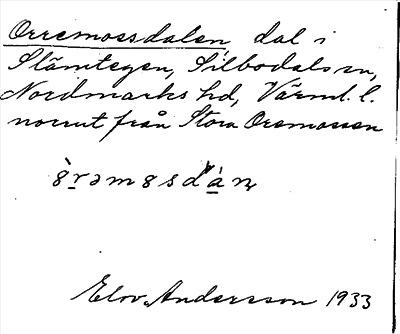 Orremossdalen, dal i
Slämtegen, Silbodals sn,
Nordmarks hd, Värml. l.
norrut från Stora Oremossen
Elov Andersson 1933